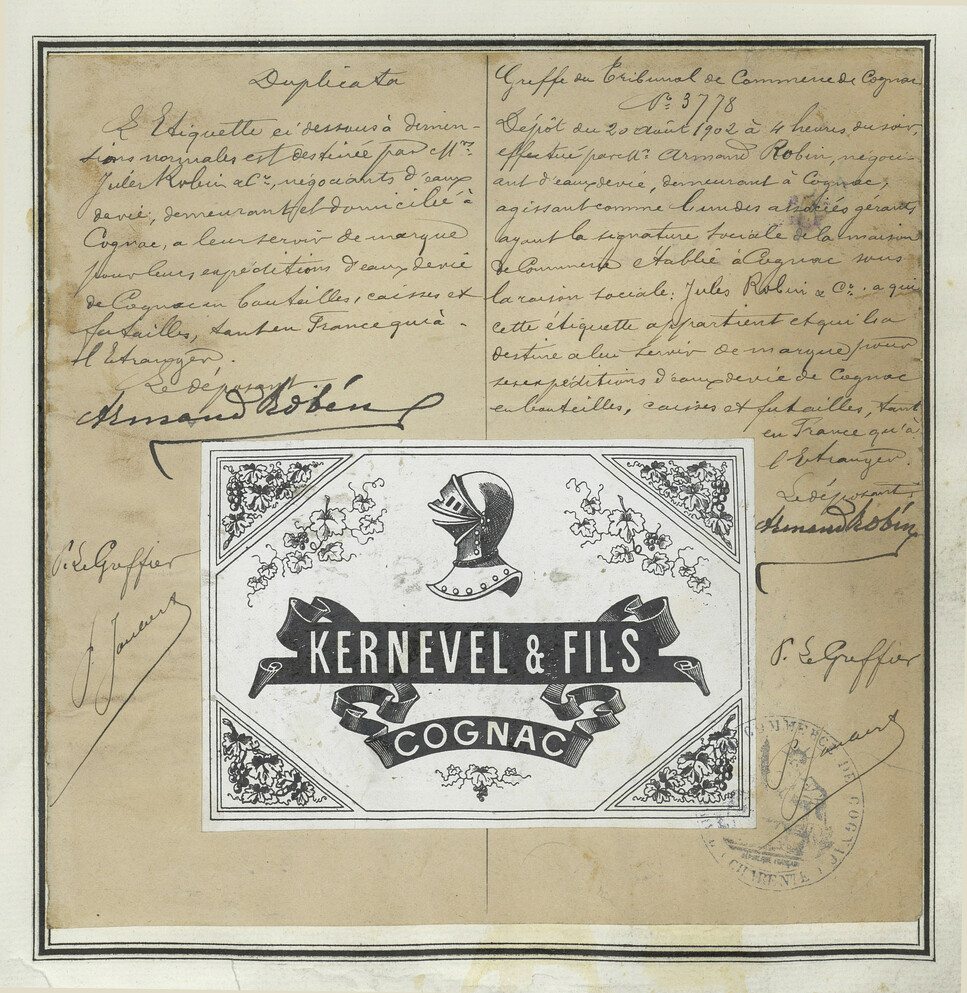 Duplicata
L'Etiquette ci dessous à dimen-
sions normales est destinée par M.rs
Jules Robin & Cie, négociants d'eaux
devie, demeurant et domicilié à
Cognac, a leur servir de marque
pour leurs expéditions d'eaux devie
de Cognac en bouteilles, caisses et
futailles, tant en France qu'à
l'Etranger.
Le déposant
Armand Robin
P. Le Greffier
Greffe du Tribunal de Commerce de Cognac
No. 3778
Dépôt du 20 août 1902 à 4 heures du soir,
effectué par Mr. Armand Robin, négoci-
ant d'eaux devie, demeurant à Cognac,
agissant comme l'un des associés gérants
ayant la signature sociale de la maison
de Commerce établie à Cognac sous
la raison sociale: Jules Robin & Co. a qui
cette étiquette appartient et qui la
destine a leur servir de marque pour
ses expéditions d'eaux devie de Cognac
en bouteilles, caisses et futailles, tant
en France qu'à
l'Etranger.
Le déposant
Armand Robin
P. Le Greffier
KERNEVEL & FILS
COGNAC
COMMERCE DE COGNAC
CHARENTE
REPUBLIQUE FRANÇAISE